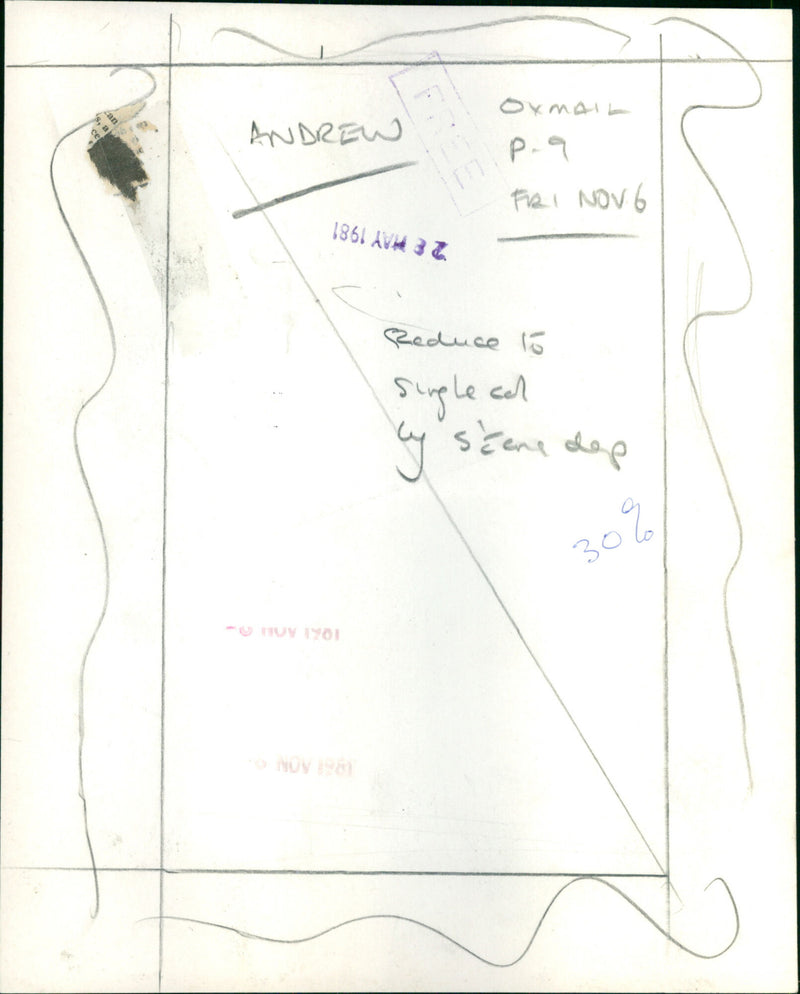 OXMAIL
ANDREW
FREE
P-9
FRI NOV 6
28 MAY 1981
Reduce to
Single col
by
30%
-6 NOV 1981
6 NOV 1981